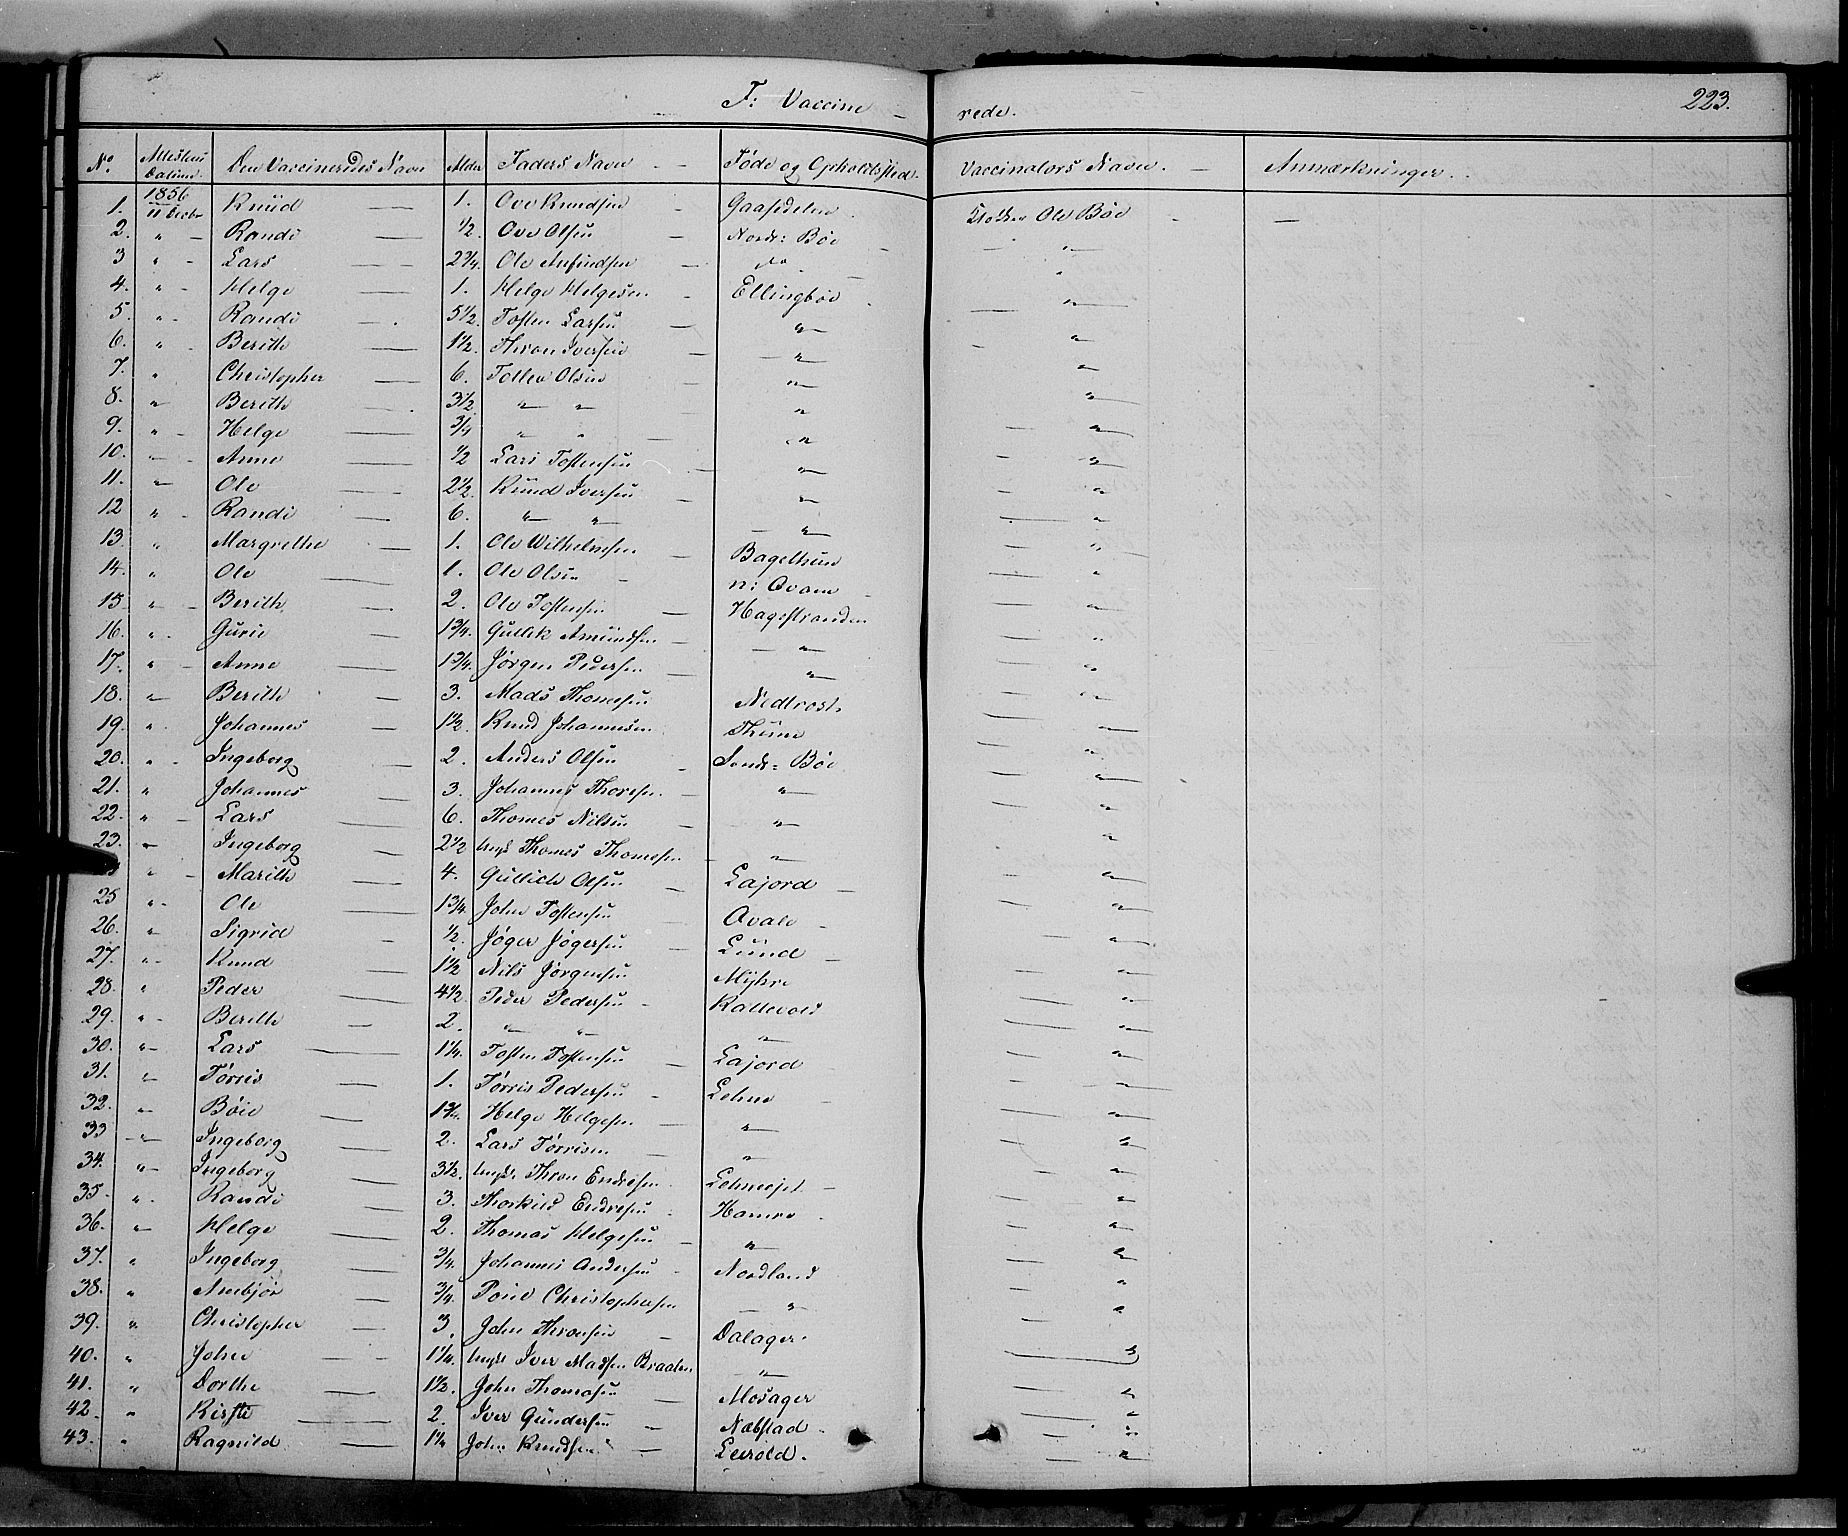 F: Vaccine – rede.
223.
No. Attestens Datum. Den Vaccineredes Navn Alder Faders Navn Føde og Opholdssted. Vaccinators Navn. Anmærkninger.
1856
1. 11 Knud 1. Ove Knudsen Gaasedelen Ole Bøe
2. " Randi ½. Ove Olsen Nordr: Bøe "
3 " Lars 2¾. Ole Anfindsen do "
4. " Helge 1. Helge Helgesen Ellingbøe "
5. " Randi 5½. Tosten Larsen " "
6. " Berith 1½. Thron Iversen " "
7. " Christopher 6. Tollev Olsen " "
8. " Berith 3½ " " " "
9. " Helge ¾ " " " "
10. " Anne ½ Lars Tostensen " "
11. " Ole 2½. Knud Iversen " "
12 " Randi 6. " " " "
13. " Margrethe 1. Ole Wilhelmsen Bagethun "
14. " Ole 1. Ole Olsen n: Qvam "
15 " Berith 2. Ole Tostensen Hagestranden "
16. " Gurie 1¾. Gullik Amundsen " "
17. " Anne 1¾. Jørgen Pedersen " "
18. " Berith 3. Mads Thomesen Nedtrost "
19. " Johannes 1½. Knud Johannesen Thune "
20. " Ingeborg 2. Anders Olsen Søndr: Bøe "
21. " Johannes 3. Johannes Thoresen " "
22. " Lars 6. Thomes Nilsen " "
23. " Ingeborg 2½ Ungk Thomes Thomesen " "
" Marith 4. Gullich Olsen Lajord "
25 " Ole 1¾. John Tostensen Qvale "
26. " Sigrid ½. Jøger Jøgersen Lund "
27. " Knud 1½ Nils Jørgensen Myhre "
28. " Peder 4½. Peder Pedersen Kattevold "
29. " Berith 2. " " " "
30. " Lars 1¼. Tosten Tostensen Lajord "
31. " Tørris 1. Torris Pedersen Lehne "
32. " Bøie 1¾. Helge Helgesen " "
33 " Ingeborg 2. Lars Torrisen " "
34. " Ingeborg 3½. Ungk. Thron Endresen Lehnesjet "
35. " Randi 3. Thorkild Endresen Hamre "
36. " Helge 2. Thomas Helgesen " "
37. " Ingeborg ¾. Johannes Andersen Nordland "
38. " Anbjør ¾. Povel Christophersen " "
39. " Christopher 3. John Thronsen Dalager. "
40. " John 1¼. Ungk Iver Madsen Braaten " "
41. " Dorthe 1½. John Thomasen Mosager "
42 " Kirsti 2. Iver Gundersen Næbstad "
43. " Ragnild 1¼ John Knudsen Leirold. "